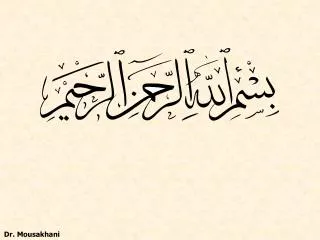 بِسْمِ ٱللَّهِ ٱلرَّحْمَٰنِ ٱلرَّحِيمِ
Dr. Mousakhani